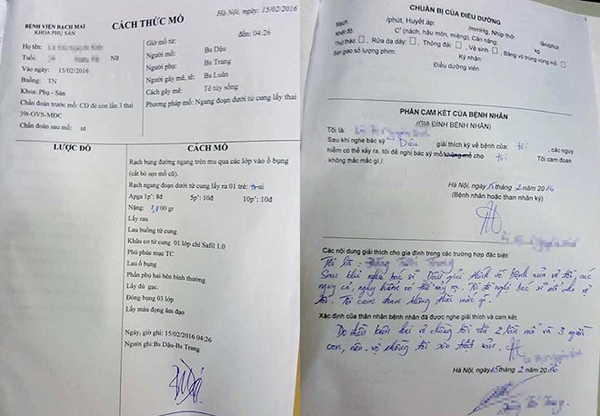 BỆNH VIỆN BẠCH MAI
KHOA PHỤ SẢN
CÁCH THỨC MỔ
Hà Nội, ngày: 15/02/2016
Họ tên:
Tuổi: Nữ
Vào ngày: 15/02/2016
Buồng: TN
Khoa: Phụ - Sản
Chẩn đoán trước mổ: CD đẻ con lần 3 thai
39t-OVS-MDC
Chẩn đoán sau mổ: nt
Giờ mổ từ: đến: 04:26
Người mổ: Bs Dậu
Người phụ: Bs Trang
Người gây mê, tê: Bs Luân
Cách gây mê: Tê tủy sống
Phương pháp mổ: Ngang đoạn dưới tử cung lấy thai
LƯỢC ĐỒ
CÁCH MỔ
Rạch bụng đường ngang trên mu qua các lớp vào ổ bụng
(cắt bỏ sẹo mổ cũ).
Rạch ngang đoạn dưới tử cung lấy ra 01 trẻ: trai
Apga 1p': 8đ 5p': 10đ 10p': 10đ
Nặng: 3,800 gr
Lấy rau
Lau buồng tử cung
Khâu cơ tử cung 01 lớp chỉ Safil 1.0
Phủ phúc mạc TC
Lau ổ bụng
Phần phụ hai bên bình thường
Lấy đủ gạc.
Đóng bụng 03 lớp
Lấy máu đọng âm đạo
Ngày, giờ ghi: 15/02/2016 04:26
Người ghi:Bs Dậu-Bs Trang
CHUẨN BỊ CỦA ĐIỀU DƯỠNG
Mạch /phút, Huyết áp: /mmHg, Nhịp thở lần/phút
C° (nách, hậu môn, miệng), Cân nặng: kg
Thụt tháo: , Rửa dạ dày: , Thông đái: , Vệ sinh , Băng vô trùng vùng mổ
Bàn giao số lượng phim: Ký nhận:
Điều dưỡng viên
PHẦN CAM KẾT CỦA BỆNH NHÂN
(GIA ĐÌNH BỆNH NHÂN)
Tôi là:
Sau khi nghe bác sỹ Dậu giải thích kỹ về bệnh của: tôi, các nguy
hiểm có thể xảy ra, tôi đề nghị bác sỹ mổ không mổ cho tôi Tôi cam đoan
không thắc mắc gì./.
Hà Nội, ngày 15 tháng 2 năm 2016
(Bệnh nhân hoặc than nhân ký)
Các nội dung giải thích cho gia đình trong các trường hợp đặc biệt:
Tôi là:
Sau khi nghe bác sĩ Dậu giải thích về bệnh của vợ tôi, các
nguy cơ, nguy hiểm có thể xảy ra. Tôi đề nghị bác sĩ mổ cho vợ
tôi. Tôi cam đoan không thắc mắc gì.
Xác định của thân nhân bệnh nhân đã được nghe giải thích và cam kết:
Do điều kiện hai vợ chồng tôi đã 2 lần mổ và 3
con, nên vợ chồng tôi xin triệt sản.
Hà Nội, ngày 15 tháng 2 năm 2016